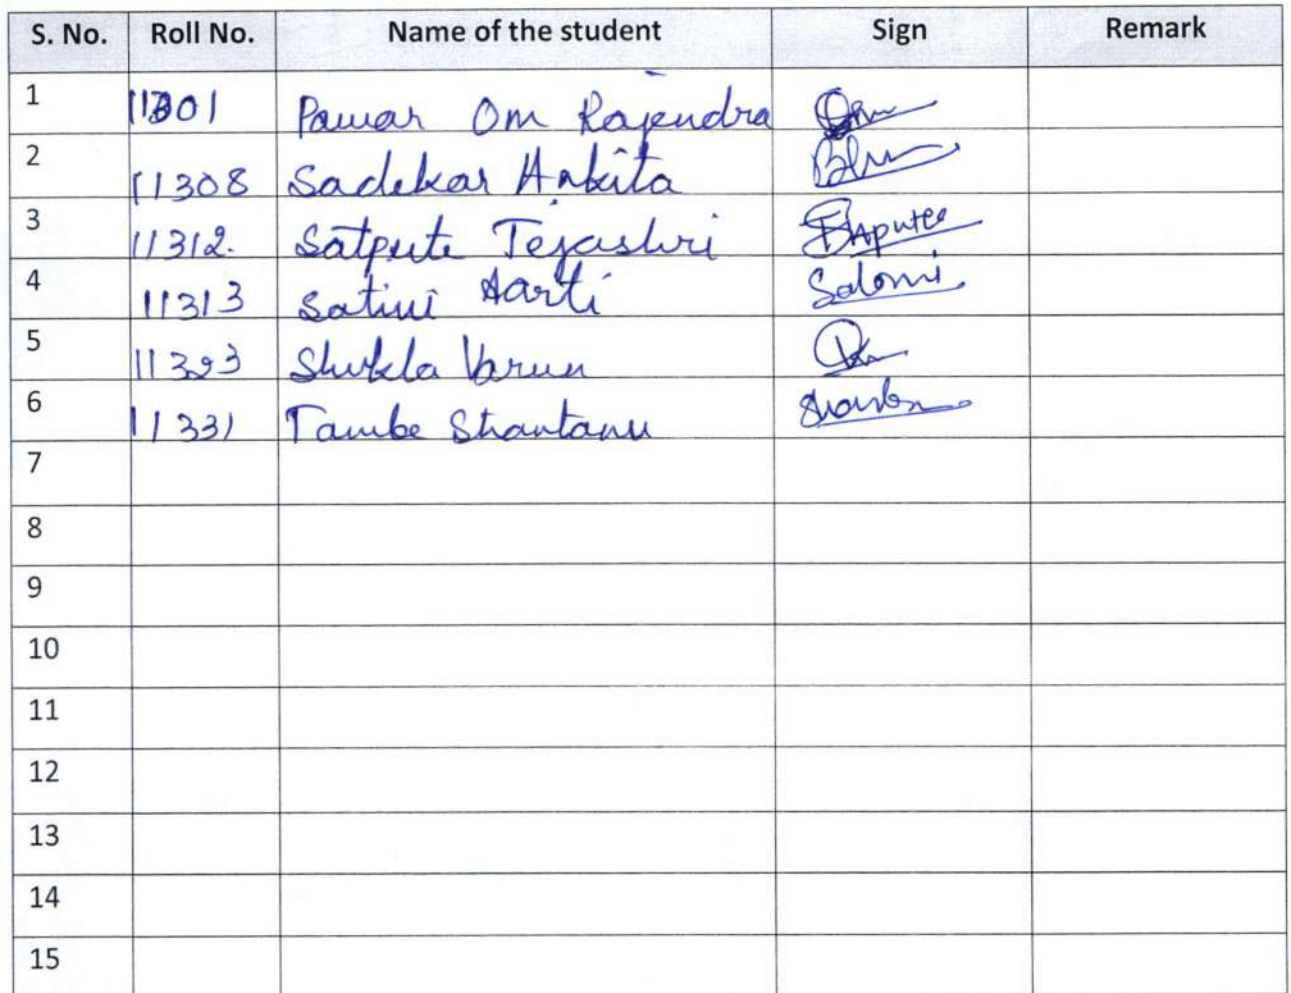 S. No. Roll No. Name of the student Sign Remark
1 11301 Pawar Om Rajendra Om
2 11308 Sadekar Ankita
3 11312. Satpute Tejashri
4 11313 Satini Aarti Salomi
5 11323 Shukla Varun
6 11331 Tambe Shantanu
7
8
9
10
11
12
13
14
15